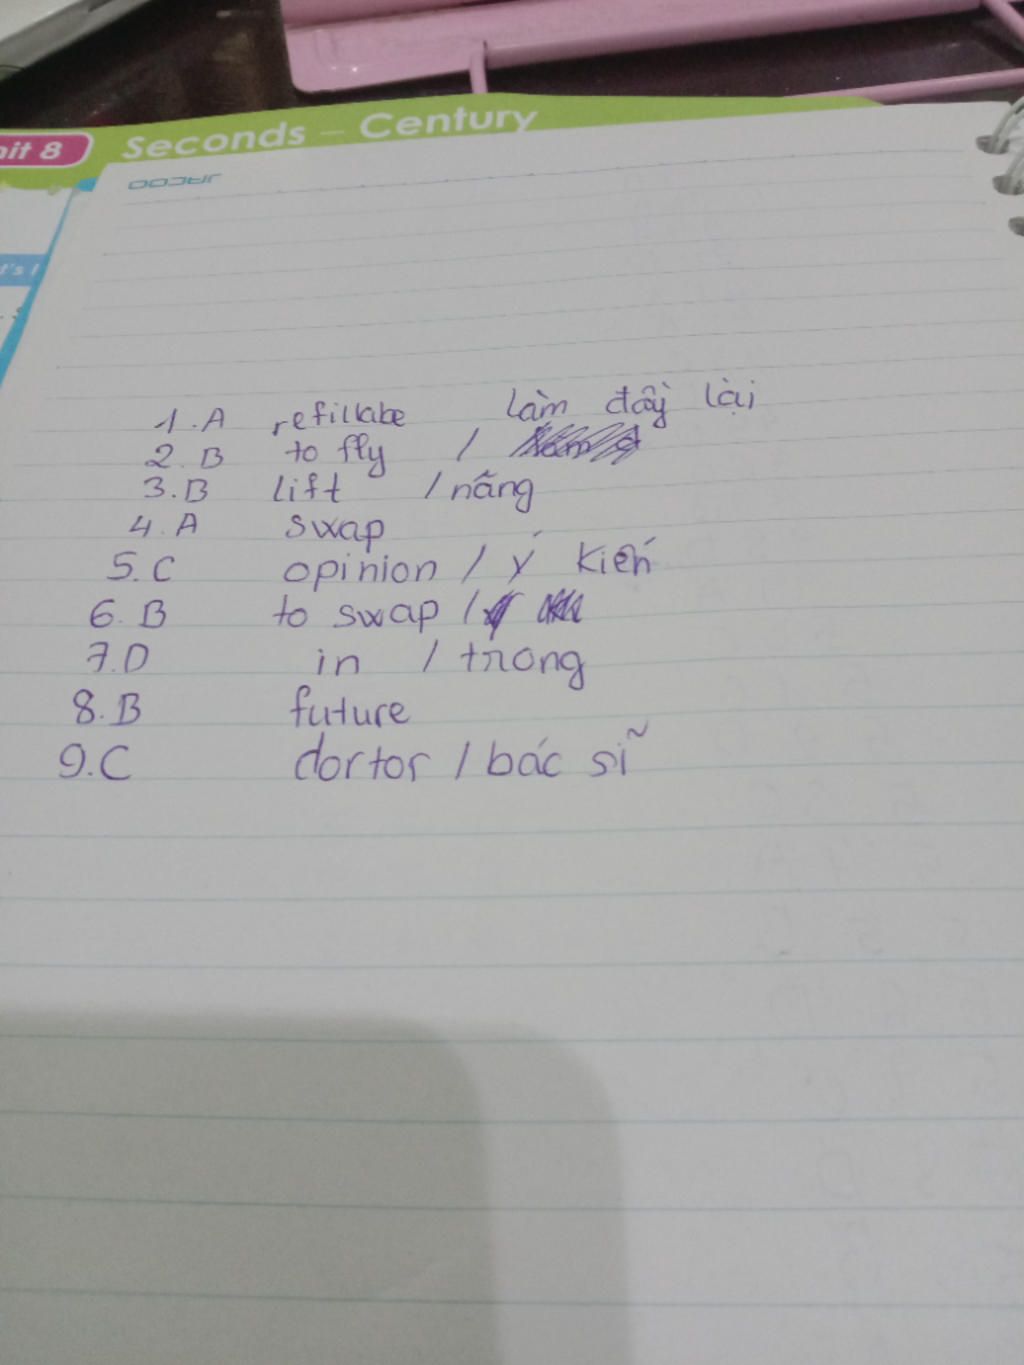 Unit 8 Seconds – Century
1. A refillabe làm đầy lại
2. B to fly /
3. B lift / nãng
4. A swap
5. C opinion / ý kiến
6. B to swap /
7. D in / trong
8. B future
9. C dortor / bác sĩ